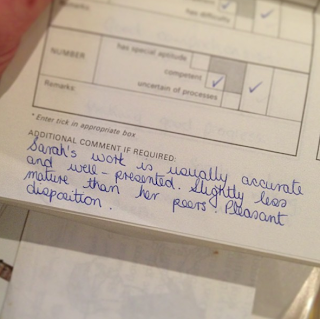 Remarks
has difficulty
NUMBER
has special aptitude
competent ✓ ✓
Remarks
uncertain of processes
* Enter tick in appropriate box
ADDITIONAL COMMENT IF REQUIRED:
Sarah's work is usually accurate
and well-presented. Slightly less
mature than her peers. Pleasant
disposition.